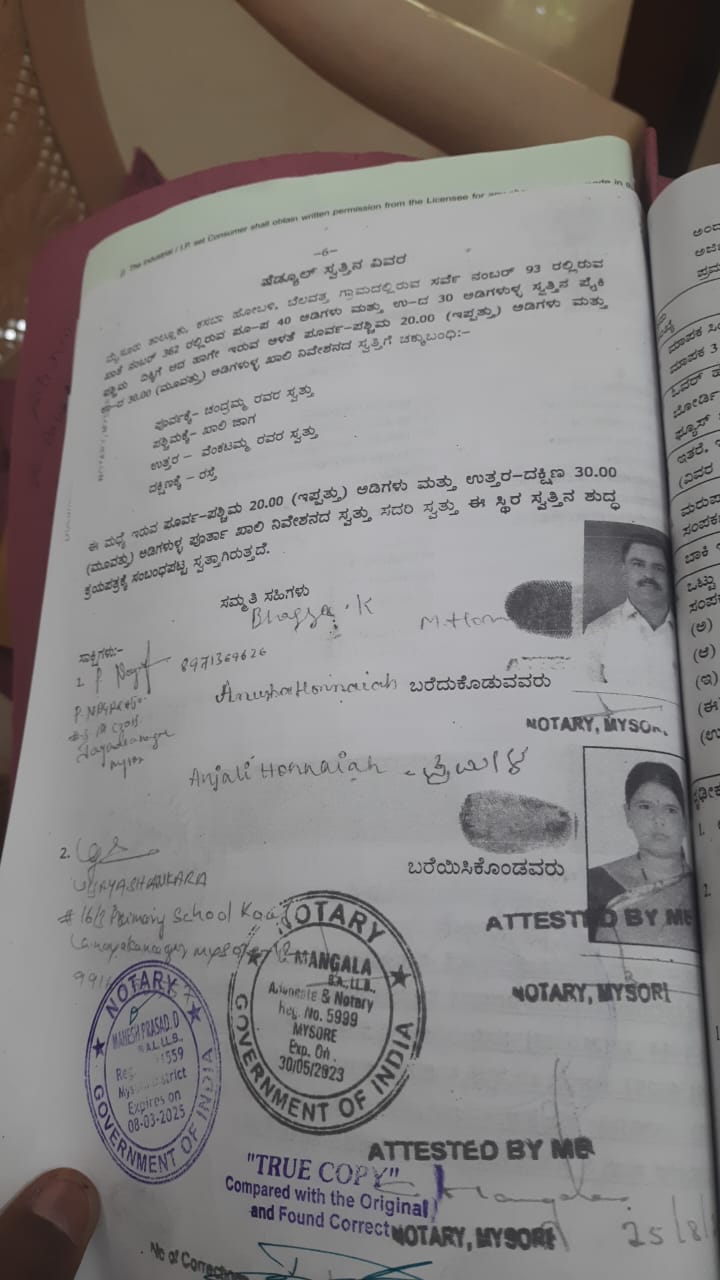 The Industrial / I.P. set Consumer shall obtain written permission from the Licensee for any
–6–
ಷೆಡ್ಯೂಲ್ ಸ್ವತ್ತಿನ ವಿವರ
ಮೈಸೂರು ತಾಲ್ಲೂಕು, ಕಸಬಾ ಹೋಬಳಿ, ಬೆಲವತ್ತ ಗ್ರಾಮದಲ್ಲಿರುವ ಸರ್ವೆ ನಂಬರ್ 93 ರಲ್ಲಿರುವ
ಖಾತೆ ನಂಬರ್ 362 ರಲ್ಲಿರುವ ಪೂ–ಪ 40 ಅಡಿಗಳು ಮತ್ತು ಉ–ದ 30 ಅಡಿಗಳುಳ್ಳ ಸ್ವತ್ತಿನ ಪೈಕಿ
ಪಶ್ಚಿಮ ದಿಕ್ಕಿಗೆ ಆದ ಹಾಗೇ ಇರುವ ಅಳತೆ ಪೂರ್ವ–ಪಶ್ಚಿಮ 20.00 (ಇಪ್ಪತ್ತು) ಅಡಿಗಳು ಮತ್ತು
ಉ–ದ 30.00 (ಮೂವತ್ತು) ಅಡಿಗಳುಳ್ಳ ಖಾಲಿ ನಿವೇಶನದ ಸ್ವತ್ತಿಗೆ ಚಕ್ಕುಬಂಧಿ:–
ಪೂರ್ವಕ್ಕೆ– ಚಂದ್ರಮ್ಮ ರವರ ಸ್ವತ್ತು
ಪಶ್ಚಿಮಕ್ಕೆ– ಖಾಲಿ ಜಾಗ
ಉತ್ತರ – ವೆಂಕಟಮ್ಮ ರವರ ಸ್ವತ್ತು
ದಕ್ಷಿಣಕ್ಕೆ – ರಸ್ತೆ
ಈ ಮಧ್ಯೆ ಇರುವ ಪೂರ್ವ–ಪಶ್ಚಿಮ 20.00 (ಇಪ್ಪತ್ತು) ಅಡಿಗಳು ಮತ್ತು ಉತ್ತರ–ದಕ್ಷಿಣ 30.00
(ಮೂವತ್ತು) ಅಡಿಗಳುಳ್ಳ ಪೂರ್ತಾ ಖಾಲಿ ನಿವೇಶನದ ಸ್ವತ್ತು ಸದರಿ ಸ್ವತ್ತು ಈ ಸ್ಥಿರ ಸ್ವತ್ತಿನ ಶುದ್ಧ
ಕ್ರಯಪತ್ರಕ್ಕೆ ಸಂಬಂಧಪಟ್ಟ ಸ್ವತ್ತಾಗಿರುತ್ತದೆ.
ಸಮ್ಮತಿ ಸಹಿಗಳು
Bhagya.K
M.Honn
ಸಾಕ್ಷಿಗಳು:–
1. P 8971369626
P. NAGARAJU
mysore
Anusha Honnaiah ಬರೆದುಕೊಡುವವರು
NOTARY, MYSOR
Anjali Honnaiah
2.
VIJAYASHANKARA
# 16/3 Primary School Road
ಬರೆಯಿಸಿಕೊಂಡವರು
ATTESTED BY ME
NOTARY, MYSORE
NOTARY
MANGALA
B.A., LL.B.,
Advocate & Notary
Reg. No. 5999
MYSORE
Exp. On.
30/05/2023
GOVERNMENT OF INDIA
NOTARY
MAHESH PRASAD.D
B.A.L, LL.B.,
1559
Mysuru District
Expires on
08-03-2025
GOVERNMENT OF INDIA
ATTESTED BY ME
"TRUE COPY"
Compared with the Original
and Found Correct
NOTARY, MYSORE
25/8/
No of Corrections